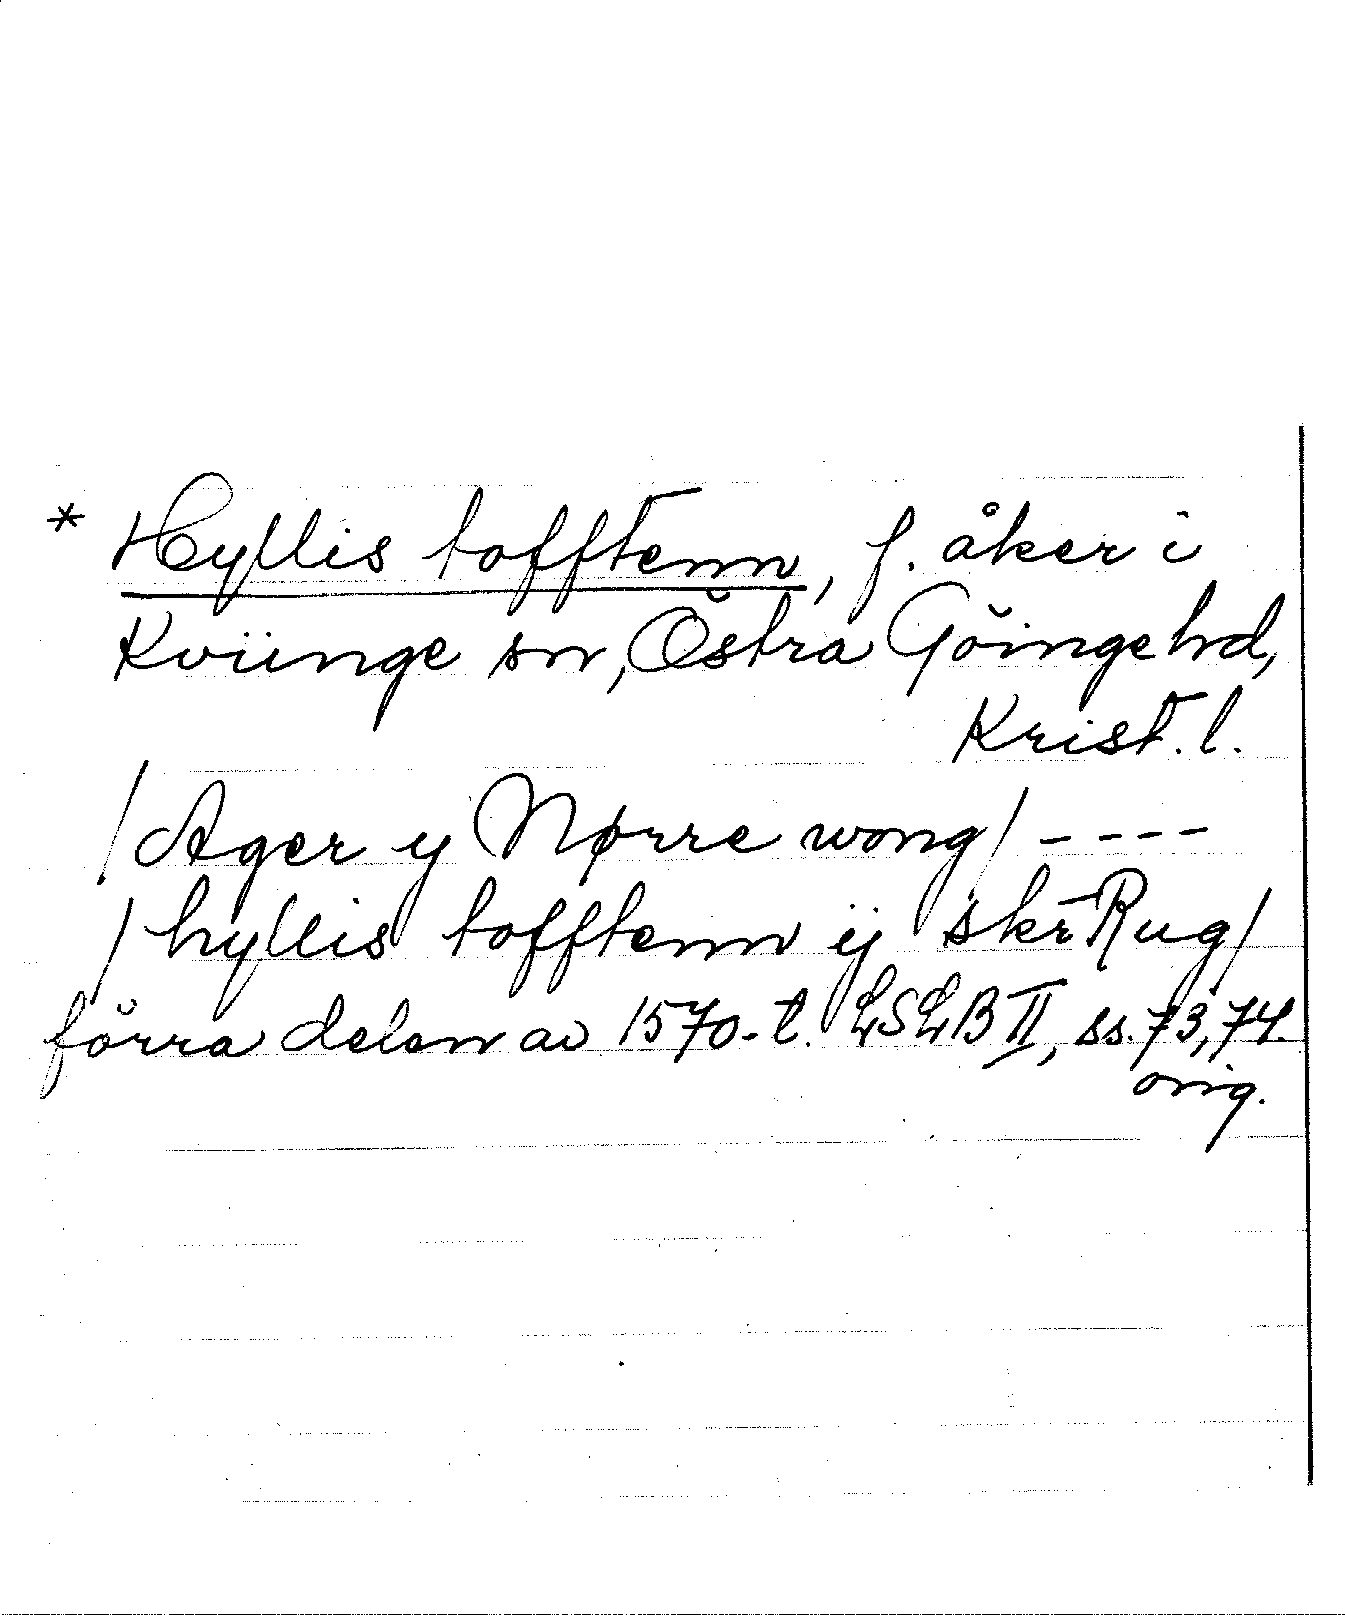 * Hyllis tofftenn, f. åker i
Kviinge sn, Östra Göinge hd,
Krist. l.
/Ager y Nørre wong/ ----
/hyllis tofftenn ij skr̄ Rug/
förra delen av 1570-t. LSLB II, ss. 73, 74.
orig.